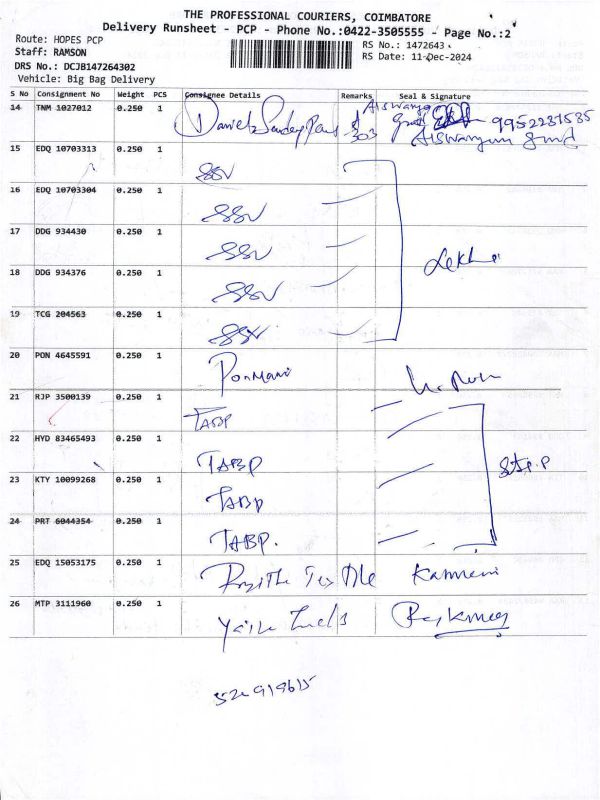 THE PROFESSIONAL COURIERS, COIMBATORE
Delivery Runsheet - PCP - Phone No.:0422-3505555 - Page No.:2
Route: HOPES PCP
RS No.: 1472643
Staff: RAMSON
RS Date: 11-Dec-2024
DRS No.: DCJB147264302
Vehicle: Big Bag Delivery
S No Consignment No Weight PCS Consignee Details Remarks Seal & Signature
14 TNM 1027012 0.250 1 303 Aiswarya 9952231535
15 EDQ 10703313 0.250 1 SSV
16 EDQ 10703304 0.250 1 SSV
17 DDG 934430 0.250 1 SSV
18 DDG 934376 0.250 1 SSV
19 TCG 204563 0.250 1 SSV
20 PON 4645591 0.250 1 Ponmani
21 RJP 3500139 0.250 1 TABP
22 HYD 83465493 0.250 1 TABP
23 KTY 10099268 0.250 1 TABP
24 PRT 6044354 0.250 1 TABP.
25 EDQ 15053175 0.250 1
26 MTP 3111960 0.250 1